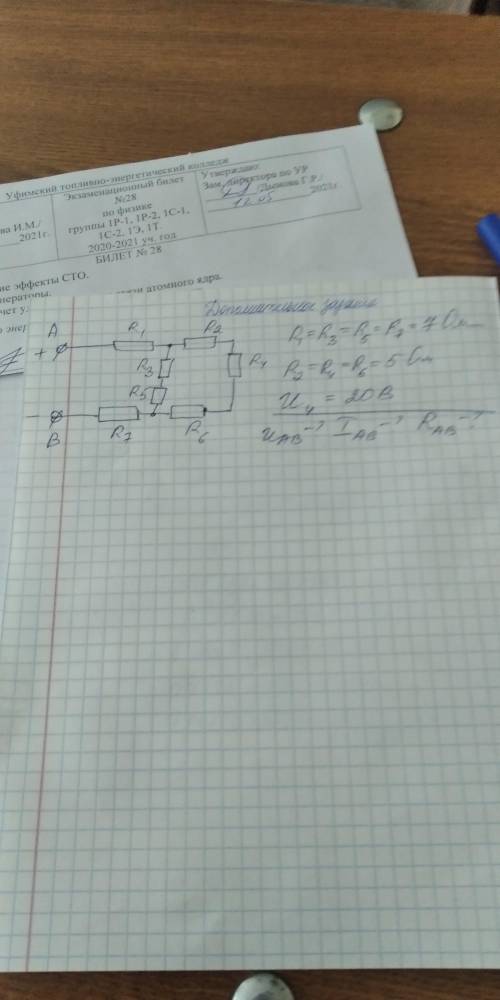 Уфимский топливно-энергетический колледж
ва И.М./
2021г.
Экзаменационный билет
№28
по физике
группы 1Р-1, 1Р-2, 1С-1,
1С-2, 1Э, 1Т.
2020-2021 уч. год
Утверждаю:
Зам. директора по УР
2021г
12.05
БИЛЕТ № 28
ие эффекты СТО.
нераторы.
чет у
связи атомного ядра.
о энер
Дополнительное задание
A
+
R1
R2
R3
R4
R5
R6
R7
−
B
R1 = R3 = R5 = R7 = 7 Ом
R2 = R4 = R6 = 5 Ом
U4 = 20 В
UAB -? IAB -? RAB -?